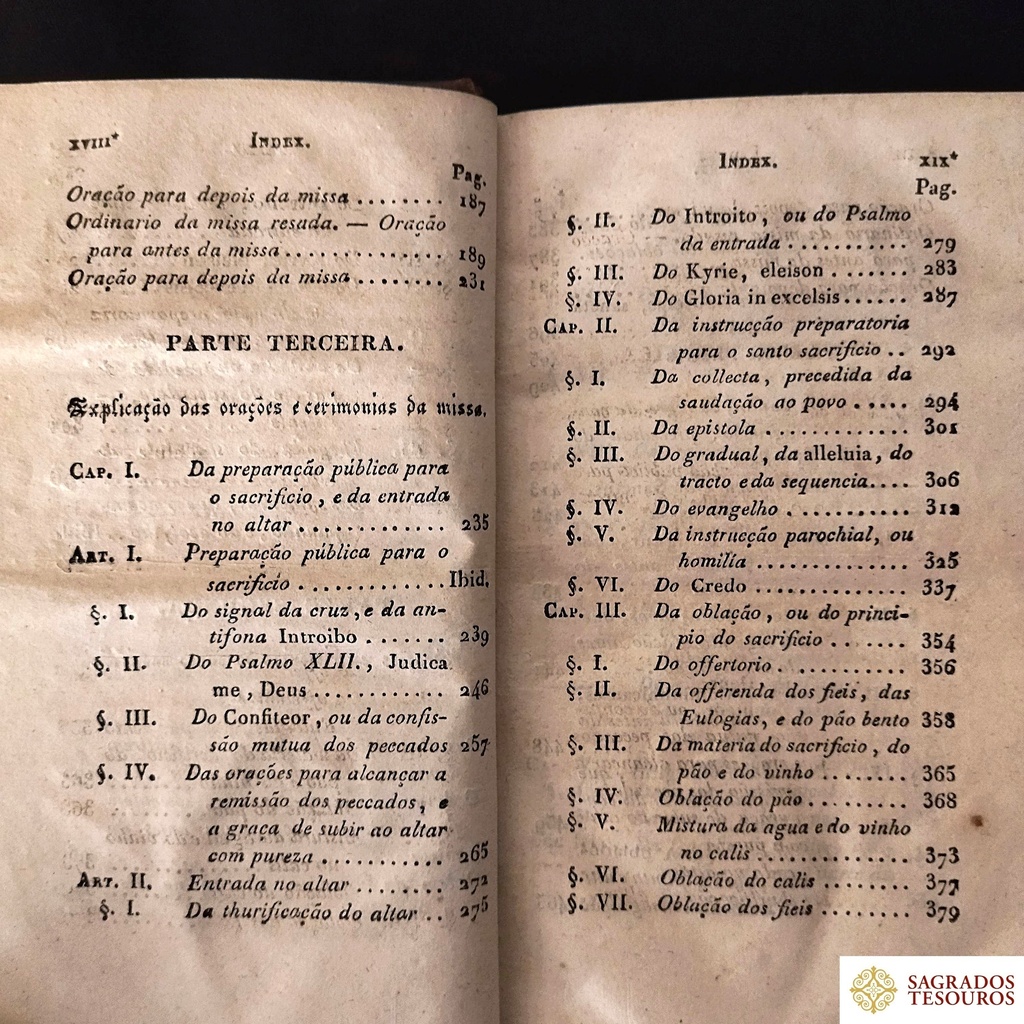 XVIII* INDEX.
Pag.
Oração para depois da missa ........ 187
Ordinario da missa resada. — Oração
para antes da missa .............. 189
Oração para depois da missa ........ 231
PARTE TERCEIRA.
Explicação das orações e cerimonias da missa.
CAP. I. Da preparação pública para
o sacrificio, e da entrada
no altar ............. 235
ART. I. Preparação pública para o
sacrificio ............ Ibid.
§. I. Do signal da cruz, e da an-
tifona Introibo ....... 239
§. II. Do Psalmo XLII., Judica
me, Deus ............ 246
§. III. Do Confiteor, ou da confis-
são mutua dos peccados 257
§. IV. Das orações para alcançar a
remissão dos peccados, e
a graça de subir ao altar
com pureza ........... 265
ART. II. Entrada no altar ........ 272
§. I. Da thurificação do altar .. 275
INDEX. XIX*
Pag.
§. II. Do Introito, ou do Psalmo
da entrada ........... 279
§. III. Do Kyrie, eleison ....... 283
§. IV. Do Gloria in excelsis ...... 287
CAP. II. Da instrucção preparatoria
para o santo sacrificio .. 292
§. I. Da collecta, precedida da
saudação ao povo ..... 294
§. II. Da epistola ............ 301
§. III. Do gradual, da alleluia, do
tracto e da sequencia.... 306
§. IV. Do evangelho ........... 312
§. V. Da instrucção parochial, ou
homilía .............. 325
§. VI. Do Credo .............. 337
CAP. III. Da oblação, ou do princi-
pio do sacrificio ....... 354
§. I. Do offertorio ........... 356
§. II. Da offerenda dos fieis, das
Eulogias, e do pão bento 358
§. III. Da materia do sacrificio, do
pão e do vinho ........ 365
§. IV. Oblação do pão ......... 368
§. V. Mistura da agua e do vinho
no calis .............. 373
§. VI. Oblação do calis ........ 377
§. VII. Oblação dos fieis ........ 379
SAGRADOS
TESOUROS